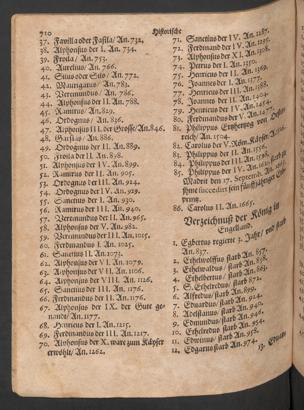 710 Historische
37. Favilla oder Fasila/ An. 732.
38. Alphonsus der I. An. 734.
39. Froila/ An. 753.
40. Aurelius/ An. 766.
41. Silus oder Silo/ An. 772.
42. Mauregatus/ An. 783.
43. Veremundus/ An. 786.
44. Alphonsus der II. An. 788.
45. Ramirus/ An. 829.
46. Ordognus/ An. 836.
47. Alphonsus III. der Grosse/ An. 846.
48. Garsias/ An. 886.
49. Ordognus der II. An. 889.
50. Froila der II. An. 898.
51. Alphonsus der IV. An. 899.
52. Ramirus der II. An. 905.
53. Ordognus der III. An. 924.
54. Ordognus der IV. An. 929.
55. Sanctius der I. An. 930.
56. Ramirus der III. An. 940.
57. Veremundus der II. An. 965.
58. Alphonsus der V. An. 982.
59. Veremundus der III. An. 1015.
60. Ferdinandus I. An. 1025.
61. Sanctius II. An. 1073.
62. Alphonsus der VI. An. 1079.
63. Alphonsus der VII. An. 1106.
64. Alphonsus der VIII. An. 1126.
65. Sanctius der III. An. 1176.
66. Ferdinandus der II. An. 1176.
67. Alphonsus der IX. der Gute ge-
nandt/ An. 1177.
68. Henricus der I. An. 1215.
69. Ferdinandus der III. An. 1217.
70. Alphonsus der X. ward zum Käyser
erwöhlt/ An. 1262.
71. Sanctius der IV. An. 1287.
72. Ferdinand der IV. An. 1295.
73. Alphonsus der XI. An. 1308.
74. Petrus der I. An. 1350.
75. Henricus der II. An. 1369.
76. Joannes der I. An. 1377.
77. Henricus der III. An. 1388.
78. Joannes der II. An. 1404.
79. Henricus der IV. An. 1454.
80. Ferdinandus der V. An. 1474.
81. Philippus Ertzhertzog von Oester-
reich/ An. 1504.
82. Carolus der V. Röm. Käyser/ A. 1516.
83. Philippus der II. An. 1556.
84. Philippus der III. An. 1598.
85. Philippus der IV.
Madrit den 17. Septemb. An. 1665
ihme succedirt sein fünffjähriger
printz.
86. Carolus II. An. 1665.
Verzeichnuß der König in
Engelland.
1. Egbertus regierte 3. Jahr/ und starb
An. 837.
2. Ethelwolffus/ starb An. 857.
3. Ethelwaldus/ starb An.
4. Ethelbertus/ starb An. 863.
5. S. Ethelredus/ starb An. 872.
6. Alfredus/ starb An. 899.
7. Eduardus/ starb An. 924.
8. Adelstanus/ starb An. 940.
9. Edmundus/ starb An. 946.
10. Ethelredus starb An. 954.
11. Edwinus/ starb An. 958.
12. Edgarus starb An. 974.
13.